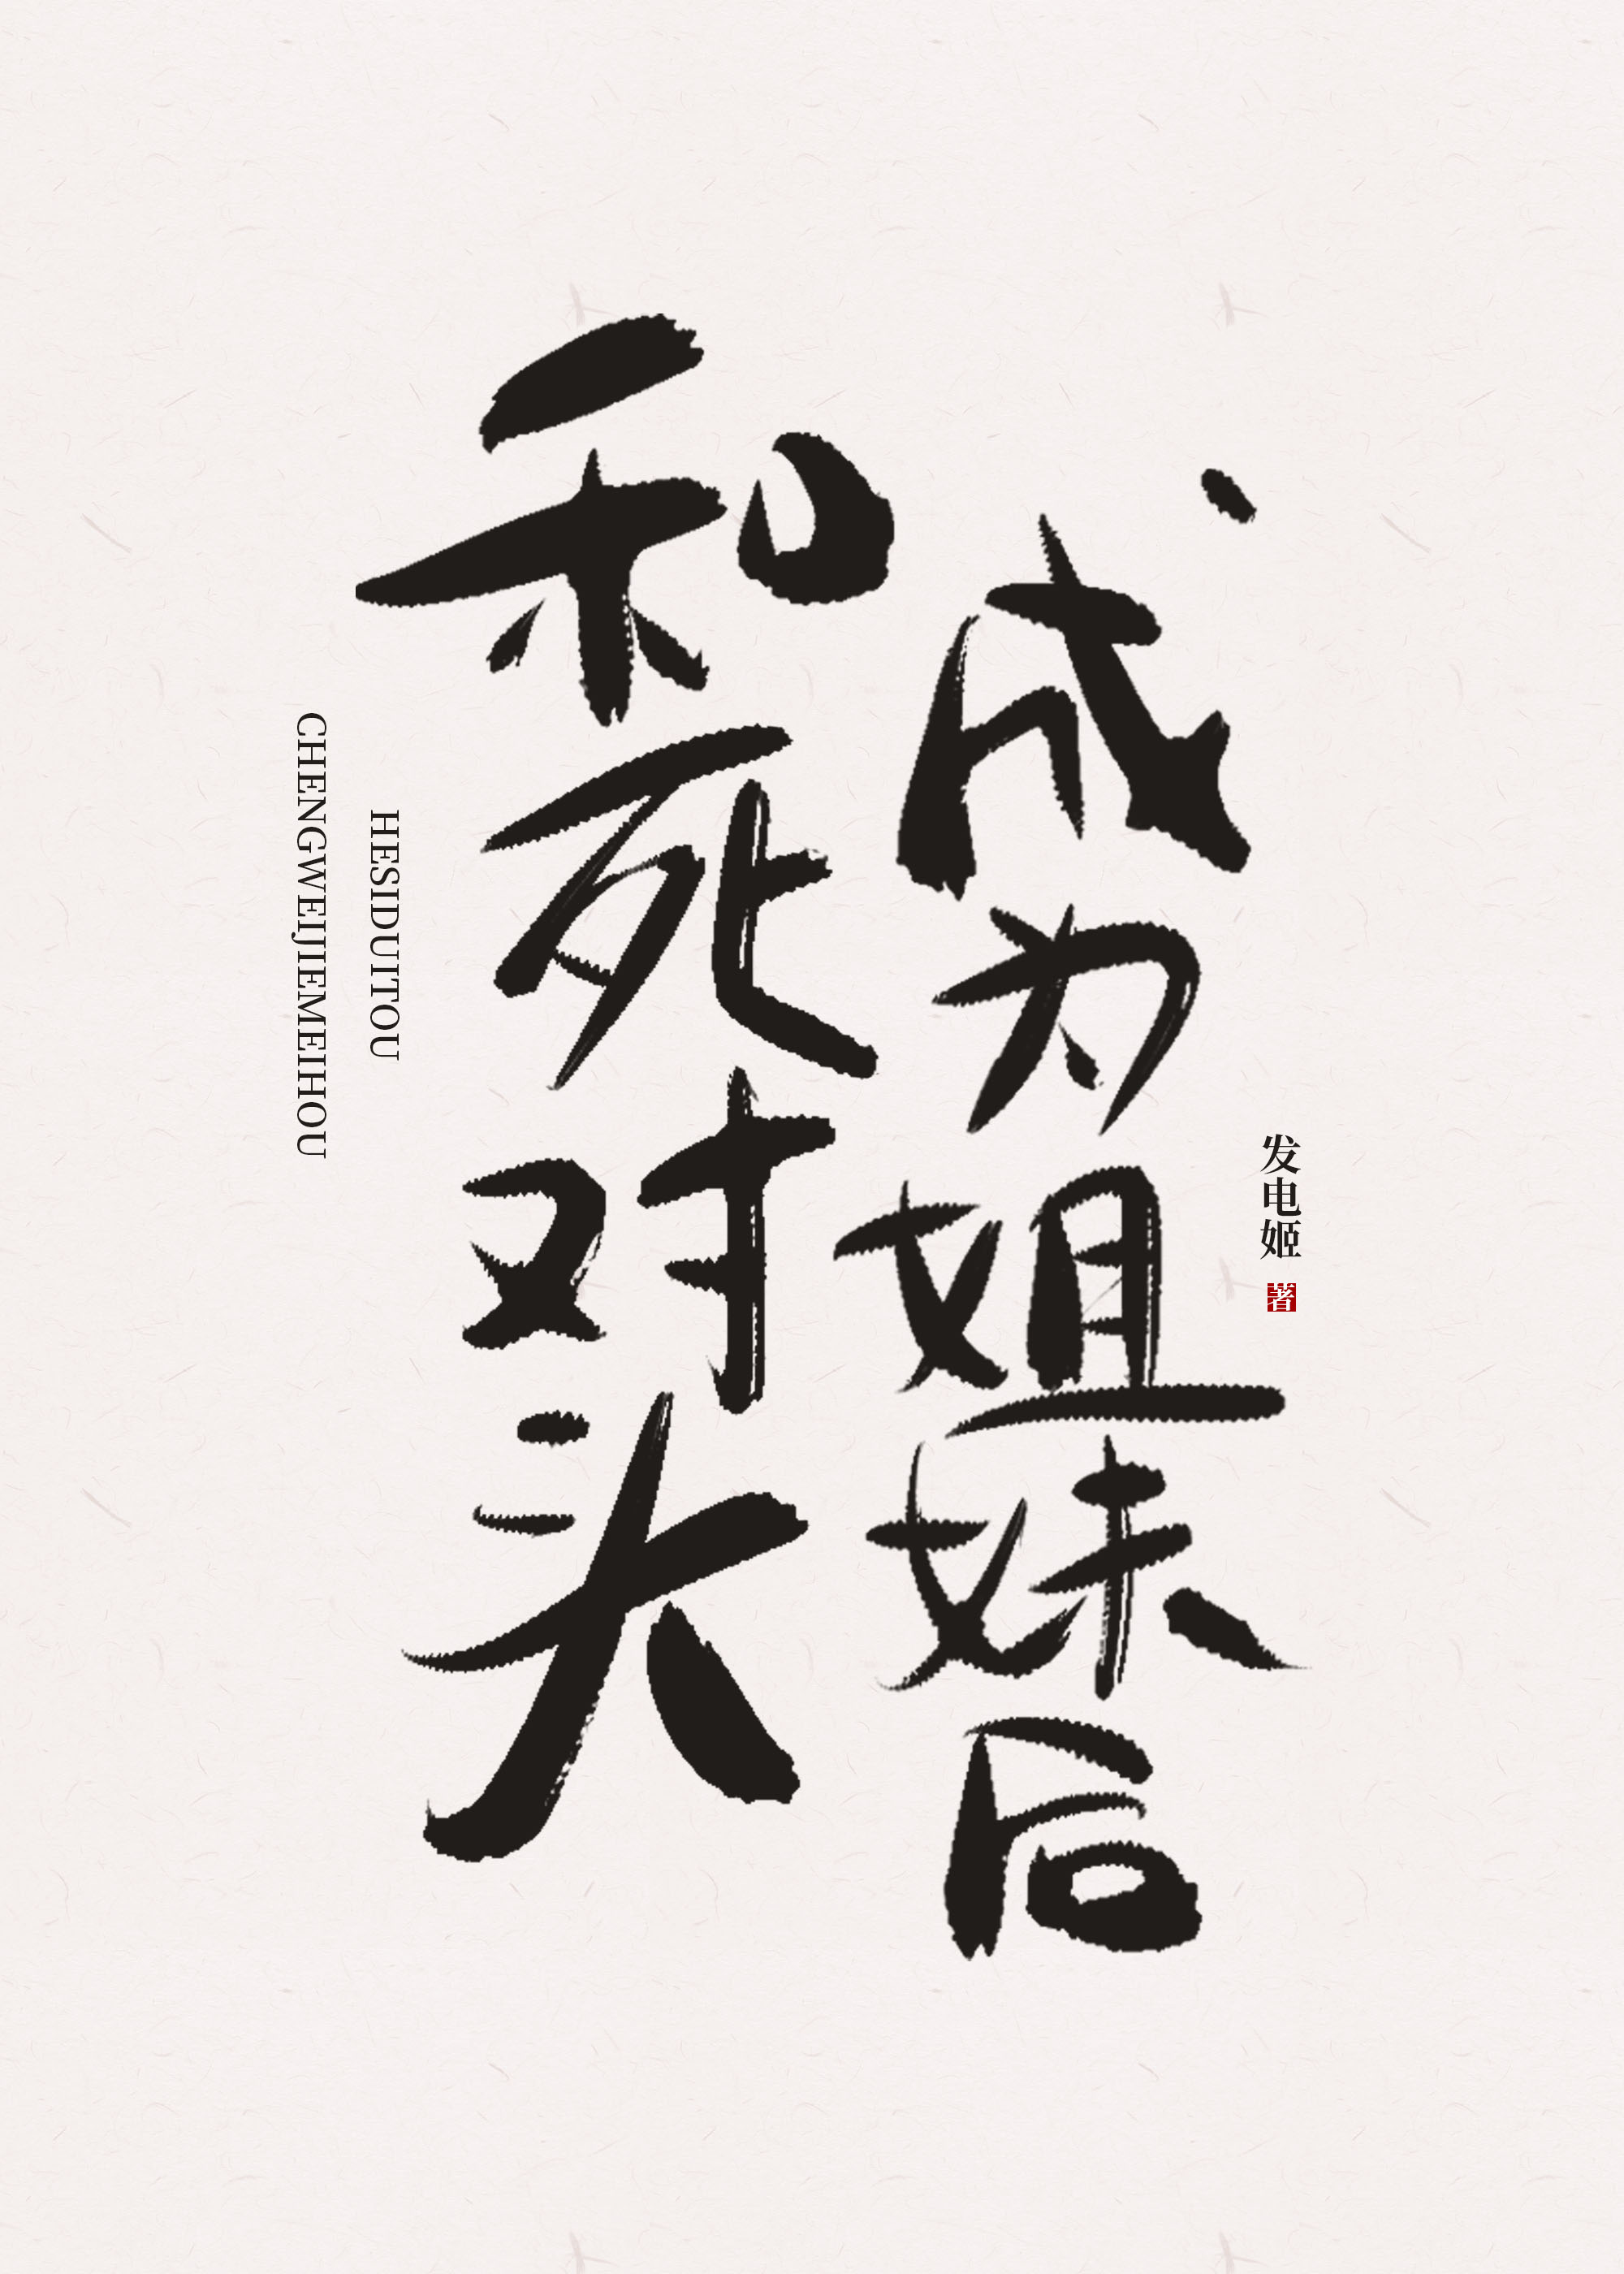 和死对头
成为姐妹后
HESIDUITOU
CHENGWEIJIEMEIHOU
发电姬
著